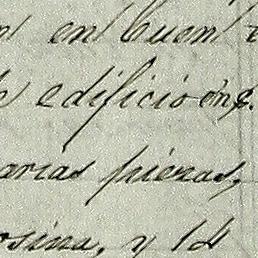 en buen
edificio en
arias piezas,
osina, y 14